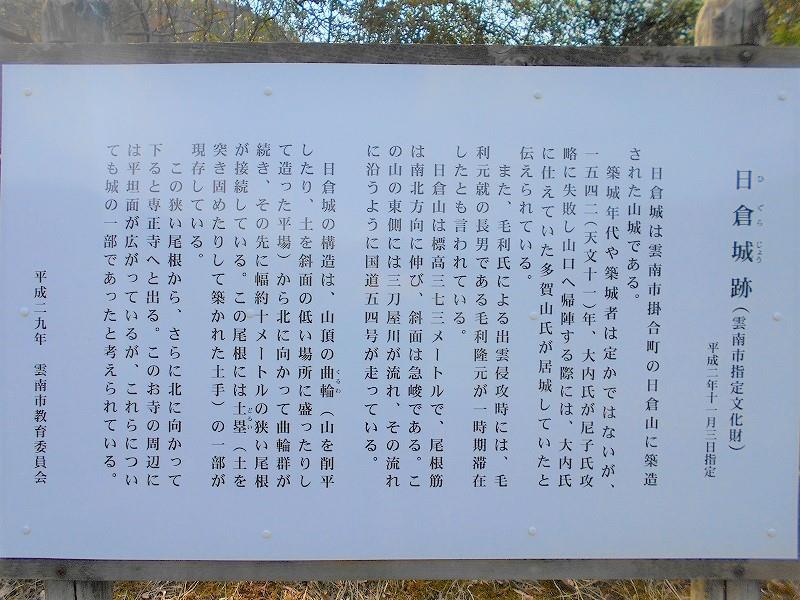 日倉城跡(雲南市指定文化財)
ひぐらじょう
平成二年十一月三日指定
日倉城は雲南市掛合町の日倉山に築造
された山城である。
築城年代や築城者は定かではないが、
一五四二(天文十一)年、大内氏が尼子氏攻
略に失敗し山口へ帰陣する際には、大内氏
に仕えていた多賀山氏が居城していたと
伝えられている。
また、毛利氏による出雲侵攻時には、毛
利元就の長男である毛利隆元が一時期滞在
したとも言われている。
日倉山は標高三七三メートルで、尾根筋
は南北方向に伸び、斜面は急峻である。こ
の山の東側には三刀屋川が流れ、その流れ
に沿うように国道五四号が走っている。
日倉城の構造は、山頂の曲輪(山を削平
くるわ
したり、土を斜面の低い場所に盛ったりし
て造った平場)から北に向かって曲輪群が
続き、その先に幅約十メートルの狭い尾根
が接続している。この尾根には土塁(土を
どるい
突き固めたりして築かれた土手)の一部が
現存している。
この狭い尾根から、さらに北に向かって
下ると専正寺へと出る。このお寺の周辺に
は平坦面が広がっているが、これらについ
ても城の一部であったと考えられている。
平成二九年 雲南市教育委員会